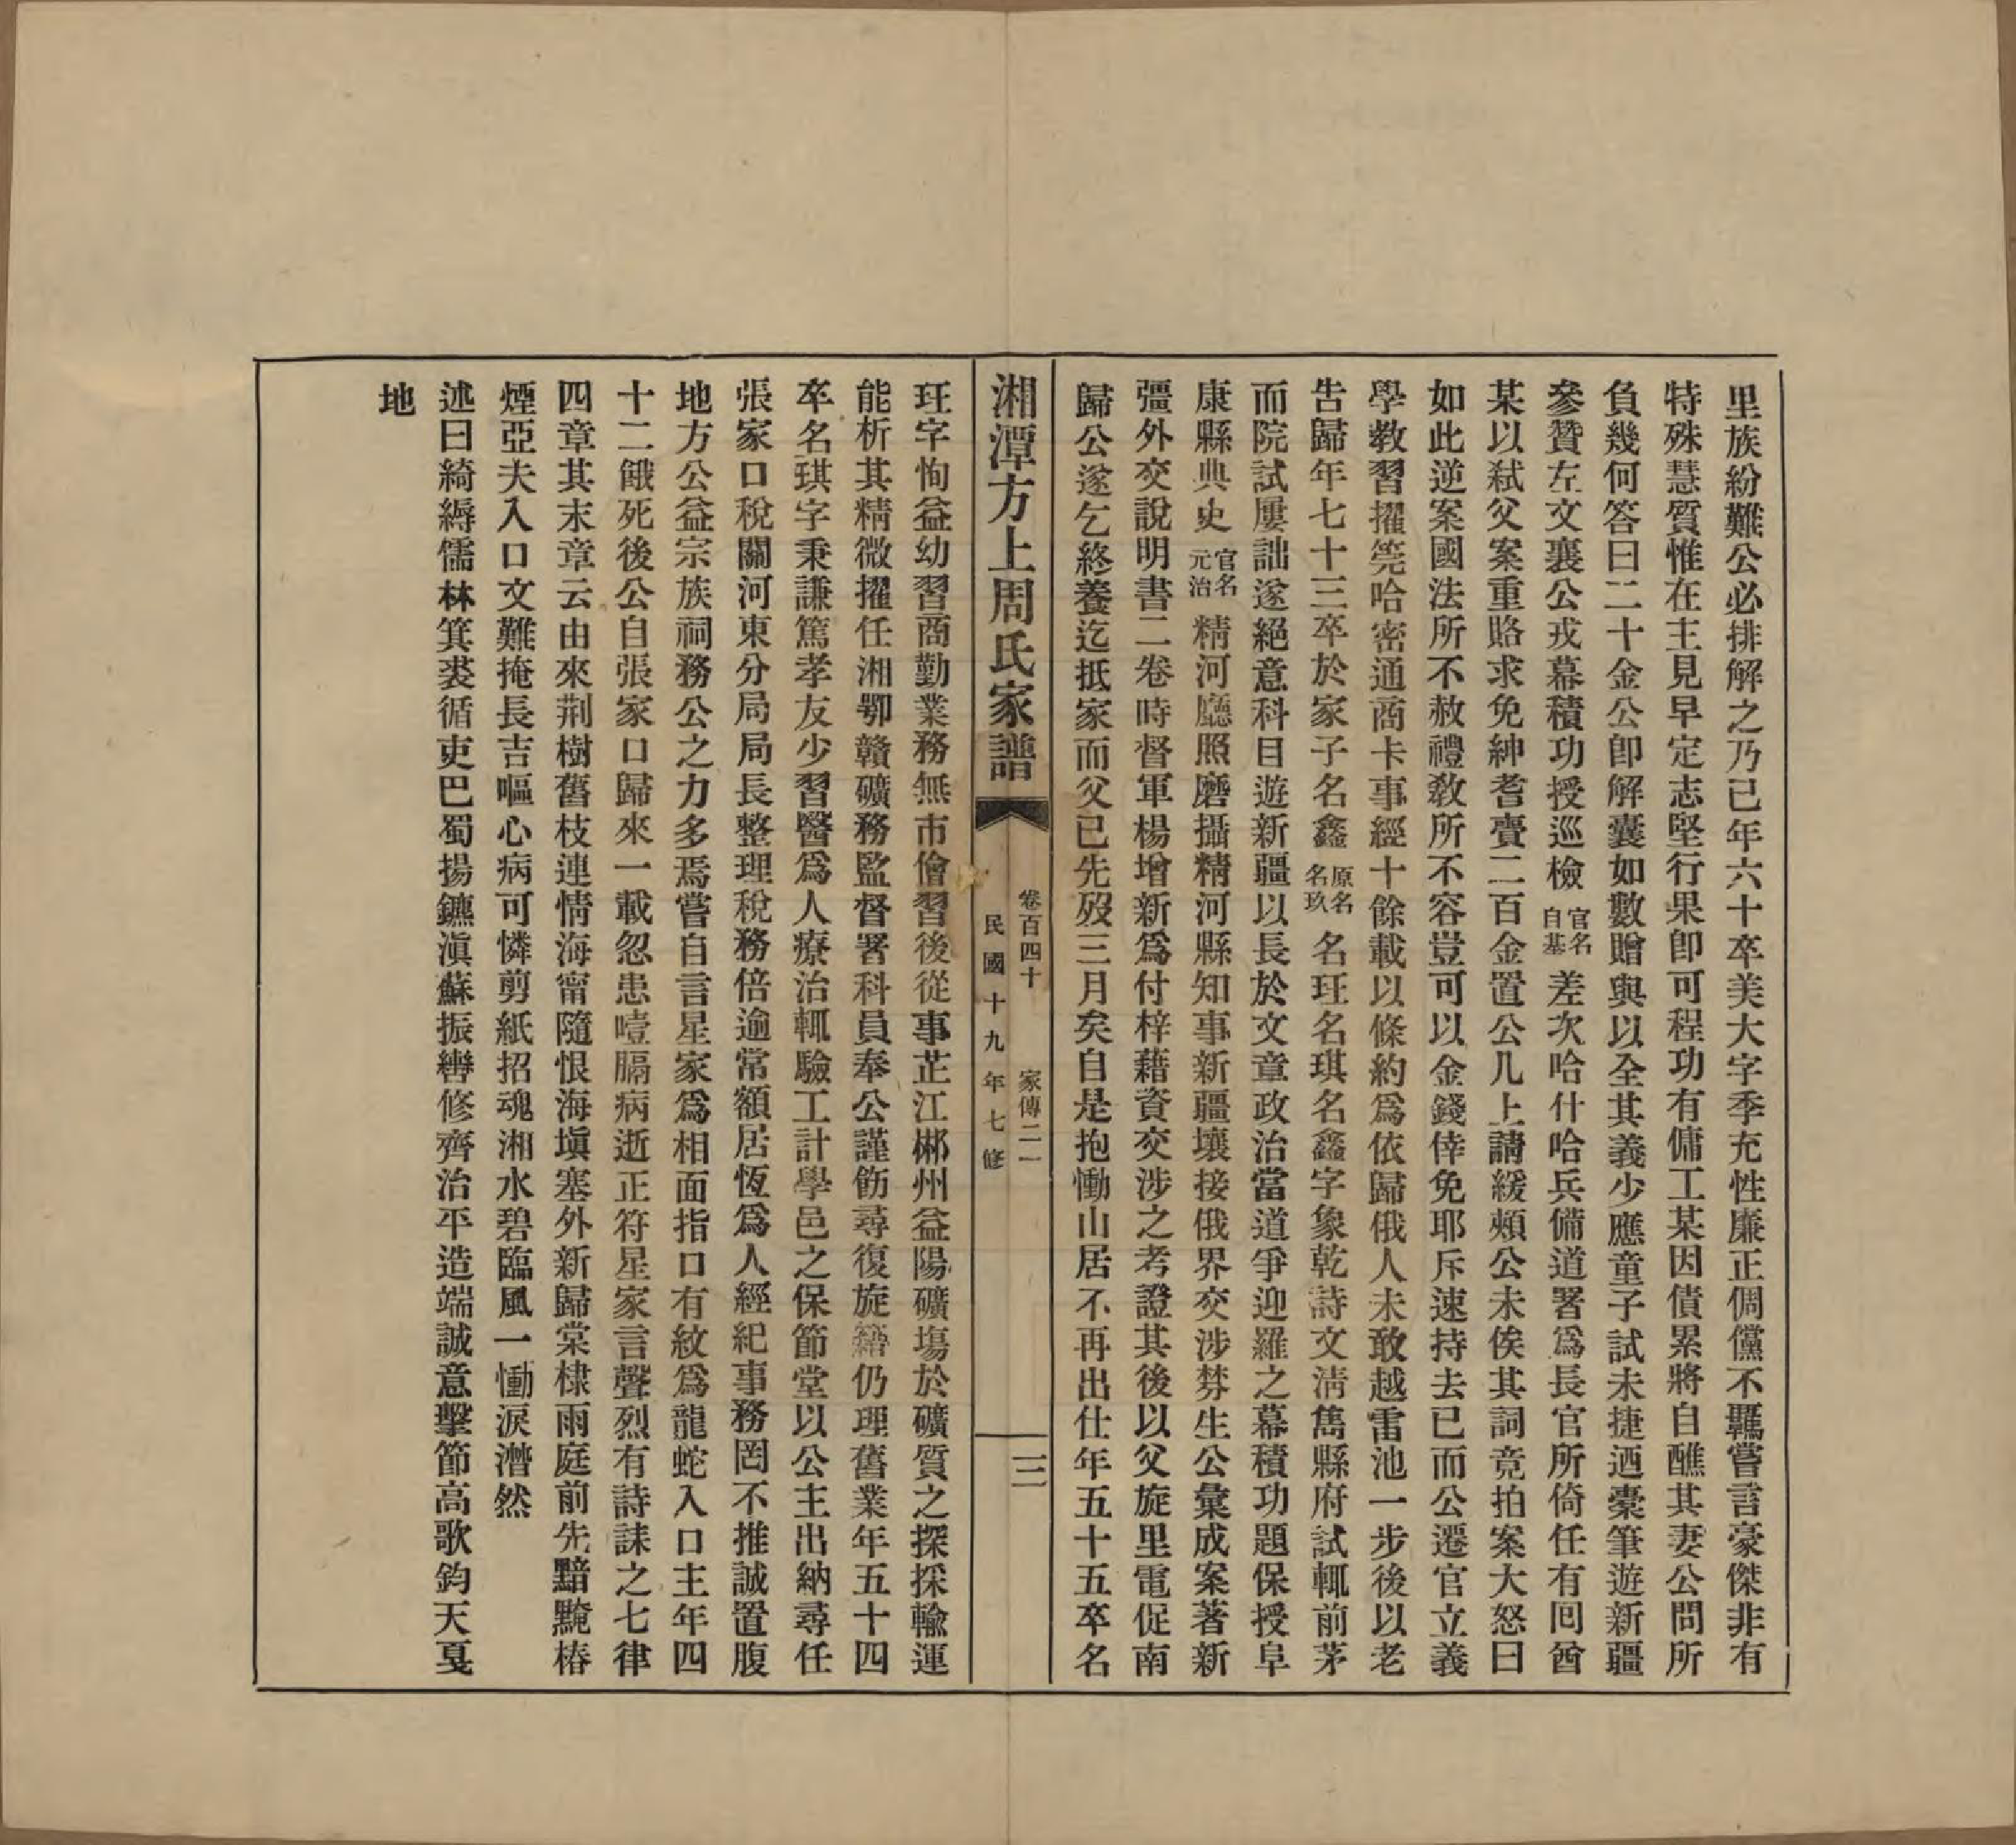 里族紛難公必排解之乃已年六十卒美大字季充性廉正倜儻不羈嘗言豪傑非有
特殊慧質惟在主見早定志堅行果卽可程功有傭工某因債累將自醮其妻公問所
負幾何答曰二十金公卽解囊如數贈與以全其義少應童子試未捷迺橐筆遊新疆
參贊左文襄公戎幕積功授巡檢官名自基差次哈什哈兵備道署爲長官所倚任有囘酋
某以弒父案重賂求免紳耆賷二百金置公几上請緩頰公未俟其詞竟拍案大怒曰
如此逆案國法所不赦禮敎所不容豈可以金錢倖免耶斥速持去已而公遷官立義
學敎習擢筦哈密通商卡事經十餘載以條約爲依歸俄人未敢越雷池一步後以老
吿歸年七十三卒於家子名鑫原名名玖名玨名琪名鑫字象乾詩文淸雋縣府試輒前茅
而院試屢詘遂絕意科目遊新疆以長於文章政治當道爭迎羅之幕積功題保授阜
康縣典史官名元治精河廳照磨攝精河縣知事新疆壤接俄界交涉棼生公彙成案著新
彊外交說明書二卷時督軍楊增新爲付梓藉資交涉之考證其後以父旋里電促南
歸公遂乞終養迄抵家而父已先歿三月矣自是抱慟山居不再出仕年五十五卒名
湘潭方上周氏家譜
卷百四十 家傳二一
民國十九年七修
三
玨字恂益幼習商勤業務無市儈習後從事芷江郴州益陽礦塲於礦質之探採輸運
能析其精微擢任湘鄂贛礦務監督署科員奉公謹飭尋復旋籍仍理舊業年五十四
卒名琪字秉謙篤孝友少習醫爲人療治輒驗工計學邑之保節堂以公主出納尋任
張家口稅關河東分局局長整理稅務倍逾常額居恆爲人經紀事務罔不推誠置腹
地方公益宗族祠務公之力多焉嘗自言星家爲相面指口有紋爲龍蛇入口主年四
十二餓死後公自張家口歸來一載忽患噎膈病逝正符星家言聲烈有詩誄之七律
四章其末章云由來荆樹舊枝連情海甯隨恨海塡塞外新歸棠棣雨庭前先黯黤椿
煙亞夫入口文難掩長吉嘔心病可憐剪紙招魂湘水碧臨風一慟淚潸然
述曰綺縟儒林箕裘循吏巴蜀揚鑣滇蘇振轡修齊治平造端誠意擊節高歌鈞天戛
地